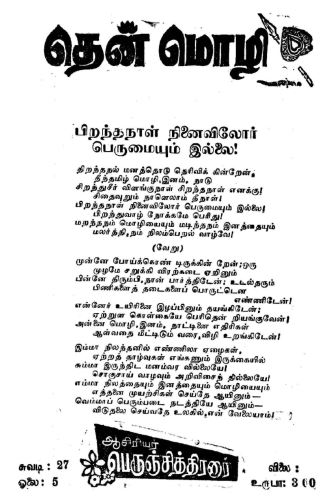 தென் மொழி
பிறந்தநாள் நினைவிலோர்
பெருமையும் இல்லை!
திறந்தநல் மனத்தொடு தெரிவிக் கின்றேன்,
தீந்தமிழ் மொழி,இனம், நாடு
சிறந்துசீர் விளங்குநாள் சிறந்தநாள் எனக்கு!
சிதைவுறும் நாளெலாம் தீநாள்!
பிறந்தநாள் நினைவிலோர் பெருமையும் இல்லை!
பிறந்துவாழ் நோக்கமே பெரிது!
மறந்தநம் மொழியையும் மடிந்தநம் இனத்தையும்
மலர்த்தி,நம் நிலம்பெறல் வாழ்வே!
(வேறு)
முன்னே போய்க்கொண் டிருக்கின் றேன்;ஒரு
முழமே சறுக்கி விரற்கடை ஏறினும்
பின்னே திரும்பி,நான் பார்த்திடேன்; உடல்தரும்
பிணிகளைத் தடைகளைப் பொருட்டென
எண்ணிடேன்!
என்னேர் உயிரினை இழப்பினும் தயங்கிடேன்;
ஏற்றுள கொள்கையே பெரிதென் றியங்குவேன்!
அன்னை மொழி,இனம், நாட்டினை எதிரிகள்
ஆள்வதை மீட்டிடும் வரை,விழி உறங்கிடேன்!
இம்மா நிலத்தனில் எண்ணிலா ஏழைகள்,
ஏற்றத் தாழ்வுகள் எங்கணும் இருக்கையில்
சும்மா இருந்திட மனம்வர வில்லையே!
சொகுசாய் வாழவும் அறிவிசைத் திலையே!
எம்மா நிலத்தையும் இனத்தையும் மொழியையும்
எத்தனை முயற்சிகள் செய்தே ஆயினும்—
வெம்மாப் பெரும்படை நடத்தியே ஆயினும்—
விடுதலை செய்வதே உலகில்,என் வேலையாம்!
ஆசிரியர்
பெருஞ்சித்திரனார்
சுவடி: 27
ஓலை: 5
விலை:
உருபா: 3 00